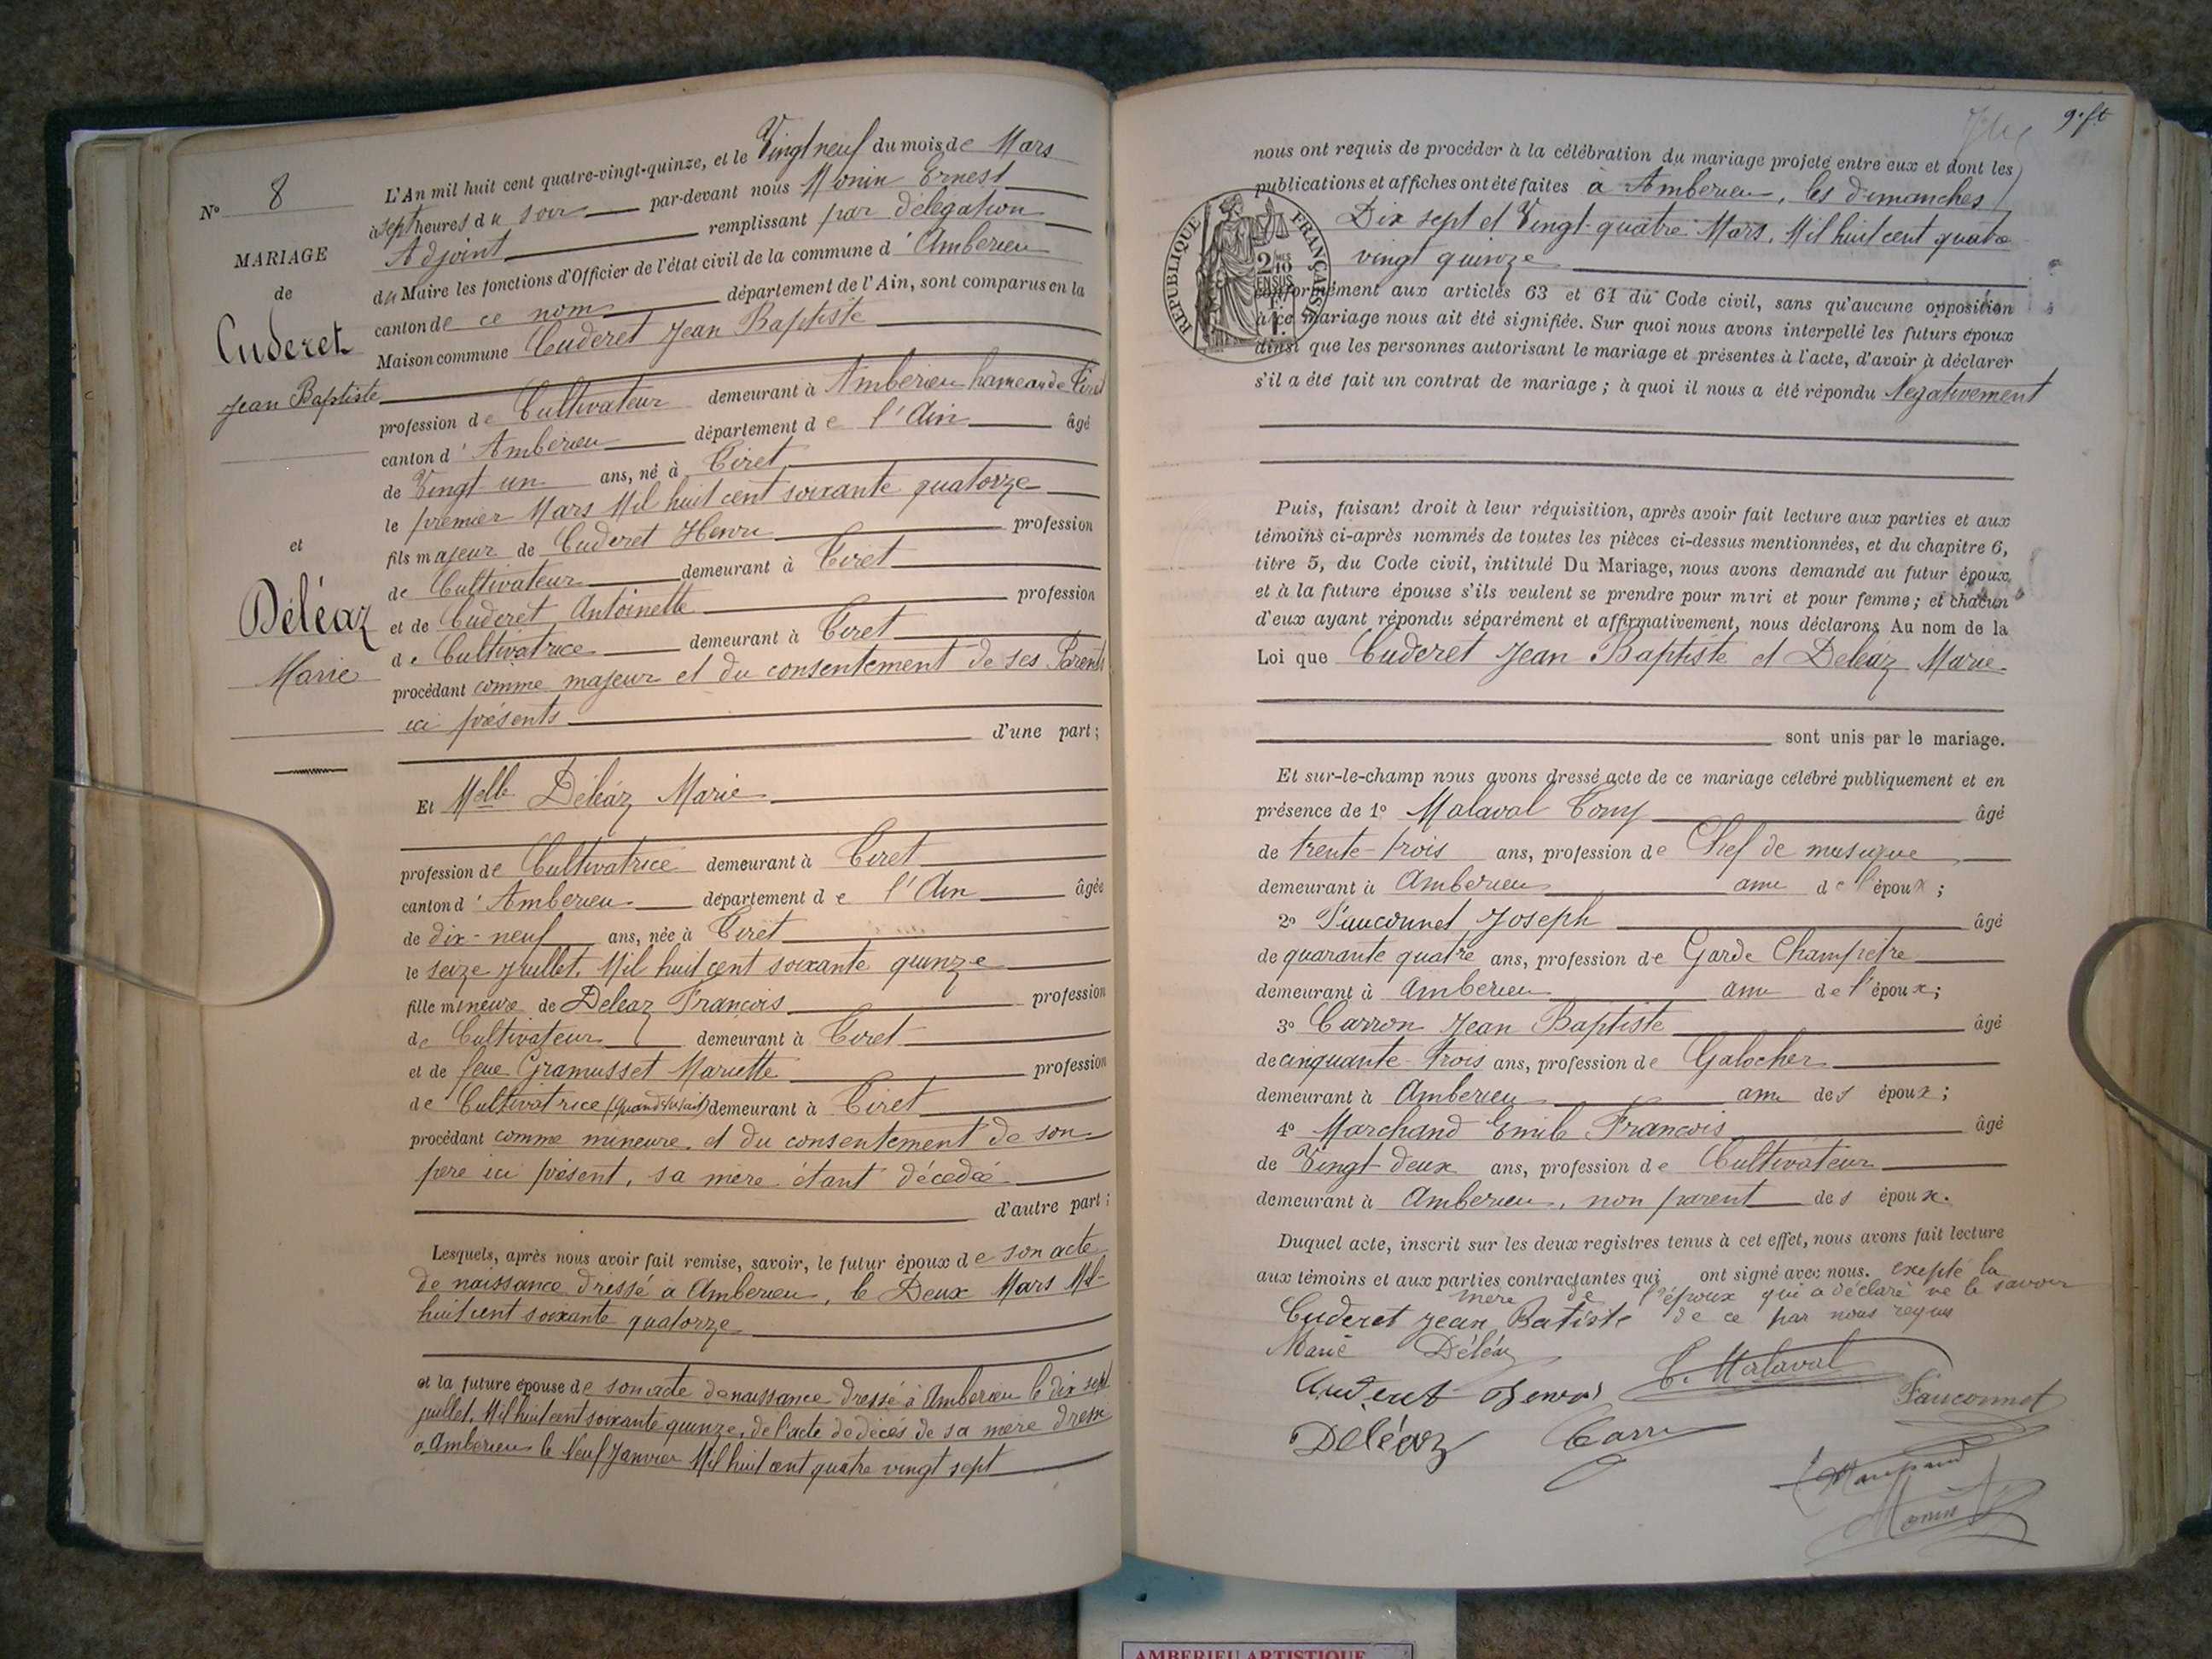 N° 8
MARIAGE
de
Cuderet
Jean Baptiste
et
Déléaz
Marie
L'An mil huit cent quatre-vingt-quinze, et le Vingt neuf du mois de Mars
à sept heures du soir par-devant nous Monin Ernest
Adjoint remplissant par délégation
du Maire les fonctions d'Officier de l'état civil de la commune d'Amberieu
canton de ce nom département de l'Ain, sont comparus en la
Maison commune Cuderet Jean Baptiste
profession de Cultivateur demeurant à Amberieu hameau de Tiret
canton d'Amberieu département de l'Ain âgé
de Vingt un ans, né à Tiret
le premier Mars Mil huit cent soixante quatorze
fils majeur de Cuderet Henri profession
de Cultivateur demeurant à Tiret
et de Cuderet Antoinette profession
de Cultivatrice demeurant à Tiret
procédant comme majeur et du consentement de ses Parents
ici présents
d'une part;
Et Melle Déléaz Marie
profession de Cultivatrice demeurant à Tiret
canton d'Amberieu département de l'Ain âgée
de dix-neuf ans, née à Tiret
le seize Juillet, Mil huit cent soixante quinze
fille mineure de Deleaz François profession
de Cultivateur demeurant à Tiret
et de feue Gramusset Mariette profession
de Cultivatrice (quand vivait) demeurant à Tiret
procédant comme mineure, et du consentement de son
père ici présent, sa mère étant décedée
d'autre part;
Lesquels, après nous avoir fait remise, savoir, le futur époux de son acte
de naissance dressé à Amberieu, le Deux Mars Mil
huit cent soixante quatorze
et la future épouse de son acte de naissance dressé à Amberieu le dix sept
juillet, Mil huit cent soixante quinze, de l'acte de décès de sa mère dressé
à Amberieu le Neuf Janvier Mil huit cent quatre vingt sept
nous ont requis de procéder à la célébration du mariage projeté entre eux et dont les
publications et affiches ont été faites à Amberieu, les dimanches
Dix sept et Vingt-quatre Mars, Mil huit cent quatre
vingt quinze
RÉPUBLIQUE FRANÇAISE
2/10
EN SUS
conformément aux articles 63 et 64 du Code civil, sans qu'aucune opposition
à ce mariage nous ait été signifiée. Sur quoi nous avons interpellé les futurs époux
ainsi que les personnes autorisant le mariage et présentes à l'acte, d'avoir à déclarer
s'il a été fait un contrat de mariage; à quoi il nous a été répondu Negativement
Puis, faisant droit à leur réquisition, après avoir fait lecture aux parties et aux
témoins ci-après nommés de toutes les pièces ci-dessus mentionnées, et du chapitre 6,
titre 5, du Code civil, intitulé Du Mariage, nous avons demandé au futur époux
et à la future épouse s'ils veulent se prendre pour mari et pour femme; et chacun
d'eux ayant répondu séparément et affirmativement, nous déclarons Au nom de la
Loi que Cuderet Jean Baptiste et Deleaz Marie
sont unis par le mariage.
Et sur-le-champ nous avons dressé acte de ce mariage célébré publiquement et en
présence de 1° Malaval Tony âgé
de trente-trois ans, profession de Chef de musique
demeurant à Amberieu ami de l'époux;
2° Fauconnet Joseph âgé
de quarante quatre ans, profession de Garde Champetre
demeurant à Amberieu ami de l'époux;
3° Carron Jean Baptiste âgé
de cinquante-trois ans, profession de Galocher
demeurant à Amberieu ami des époux;
4° Marchand Emile François âgé
de Vingt-deux ans, profession de Cultivateur
demeurant à Amberieu, non parent des époux.
Duquel acte, inscrit sur les deux registres tenus à cet effet, nous avons fait lecture
aux témoins et aux parties contractantes qui ont signé avec nous. exepté la
mère de l'époux qui a déclaré ne le savoir
de ce par nous requis
Cuderet Jean Batiste
Marie Déléaz
T. Malaval
Cuderet Henri
Fauconnet
Deléaz
Carron
Marchand
Monin
AMBERIEU ARTISTIQUE